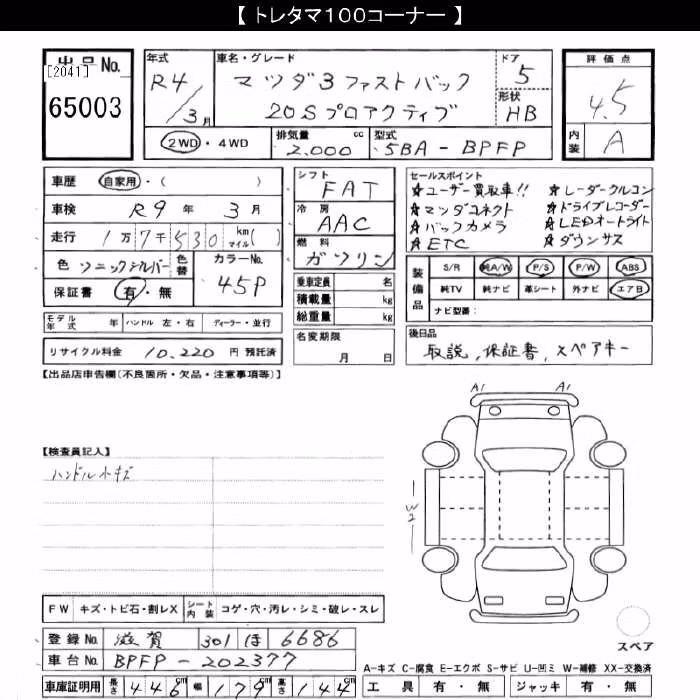 【 トレタマ100コーナー 】
出品No.
[2041]
65003
年式
R4/3月
車名・グレード
マツダ3 ファストバック
20S プロアクティブ
ドア
5
形状
HB
評価点
4.5
内装
A
2WD・4WD
排気量
2.000 cc
型式
5BA-BPFP
車歴 自家用・( )
車検 R9年3月
走行 1万7千530 km マイル( )
色 ソニックシルバー 色替 カラーNo. 45P
保証書 有・無
シフト FAT
冷房 AAC
燃料 ガソリン
乗車定員 名
積載量 kg
総重量 kg
セールスポイント
☆ユーザー買取車!! ☆レーダークルコン
☆マツダコネクト ☆ドライブレコーダー
☆バックカメラ ☆LEDオートライト
☆ETC ☆ダウンサス
装備品
S/R 純A/W P/S P/W ABS
純TV 純ナビ 革シート 外ナビ エアB
ナビ型番:
モデル年式 年 ハンドル 左・右 ディーラー・並行
リサイクル料金 10.220 円 預託済
名変期限
月 日
後日品
取説, 保証書, スペアキー
【出品店申告欄(不良箇所・欠品・注意事項等)】
A1 A1
【検査員記入】
ハンドル小キズ
W2
FW キズ・トビ石・割レX シート内装 コゲ・穴・汚レ・シミ・破レ・スレ
登録No. 滋賀 301 ほ 6686
車台No. BPFP-202377
スペア
A-キズ C-腐食 E-エクボ S-サビ U-凹ミ W-補修 XX-交換済
車庫証明用 長さ 446cm 幅 179cm 高さ 144cm
工具 有・無 ジャッキ 有・無